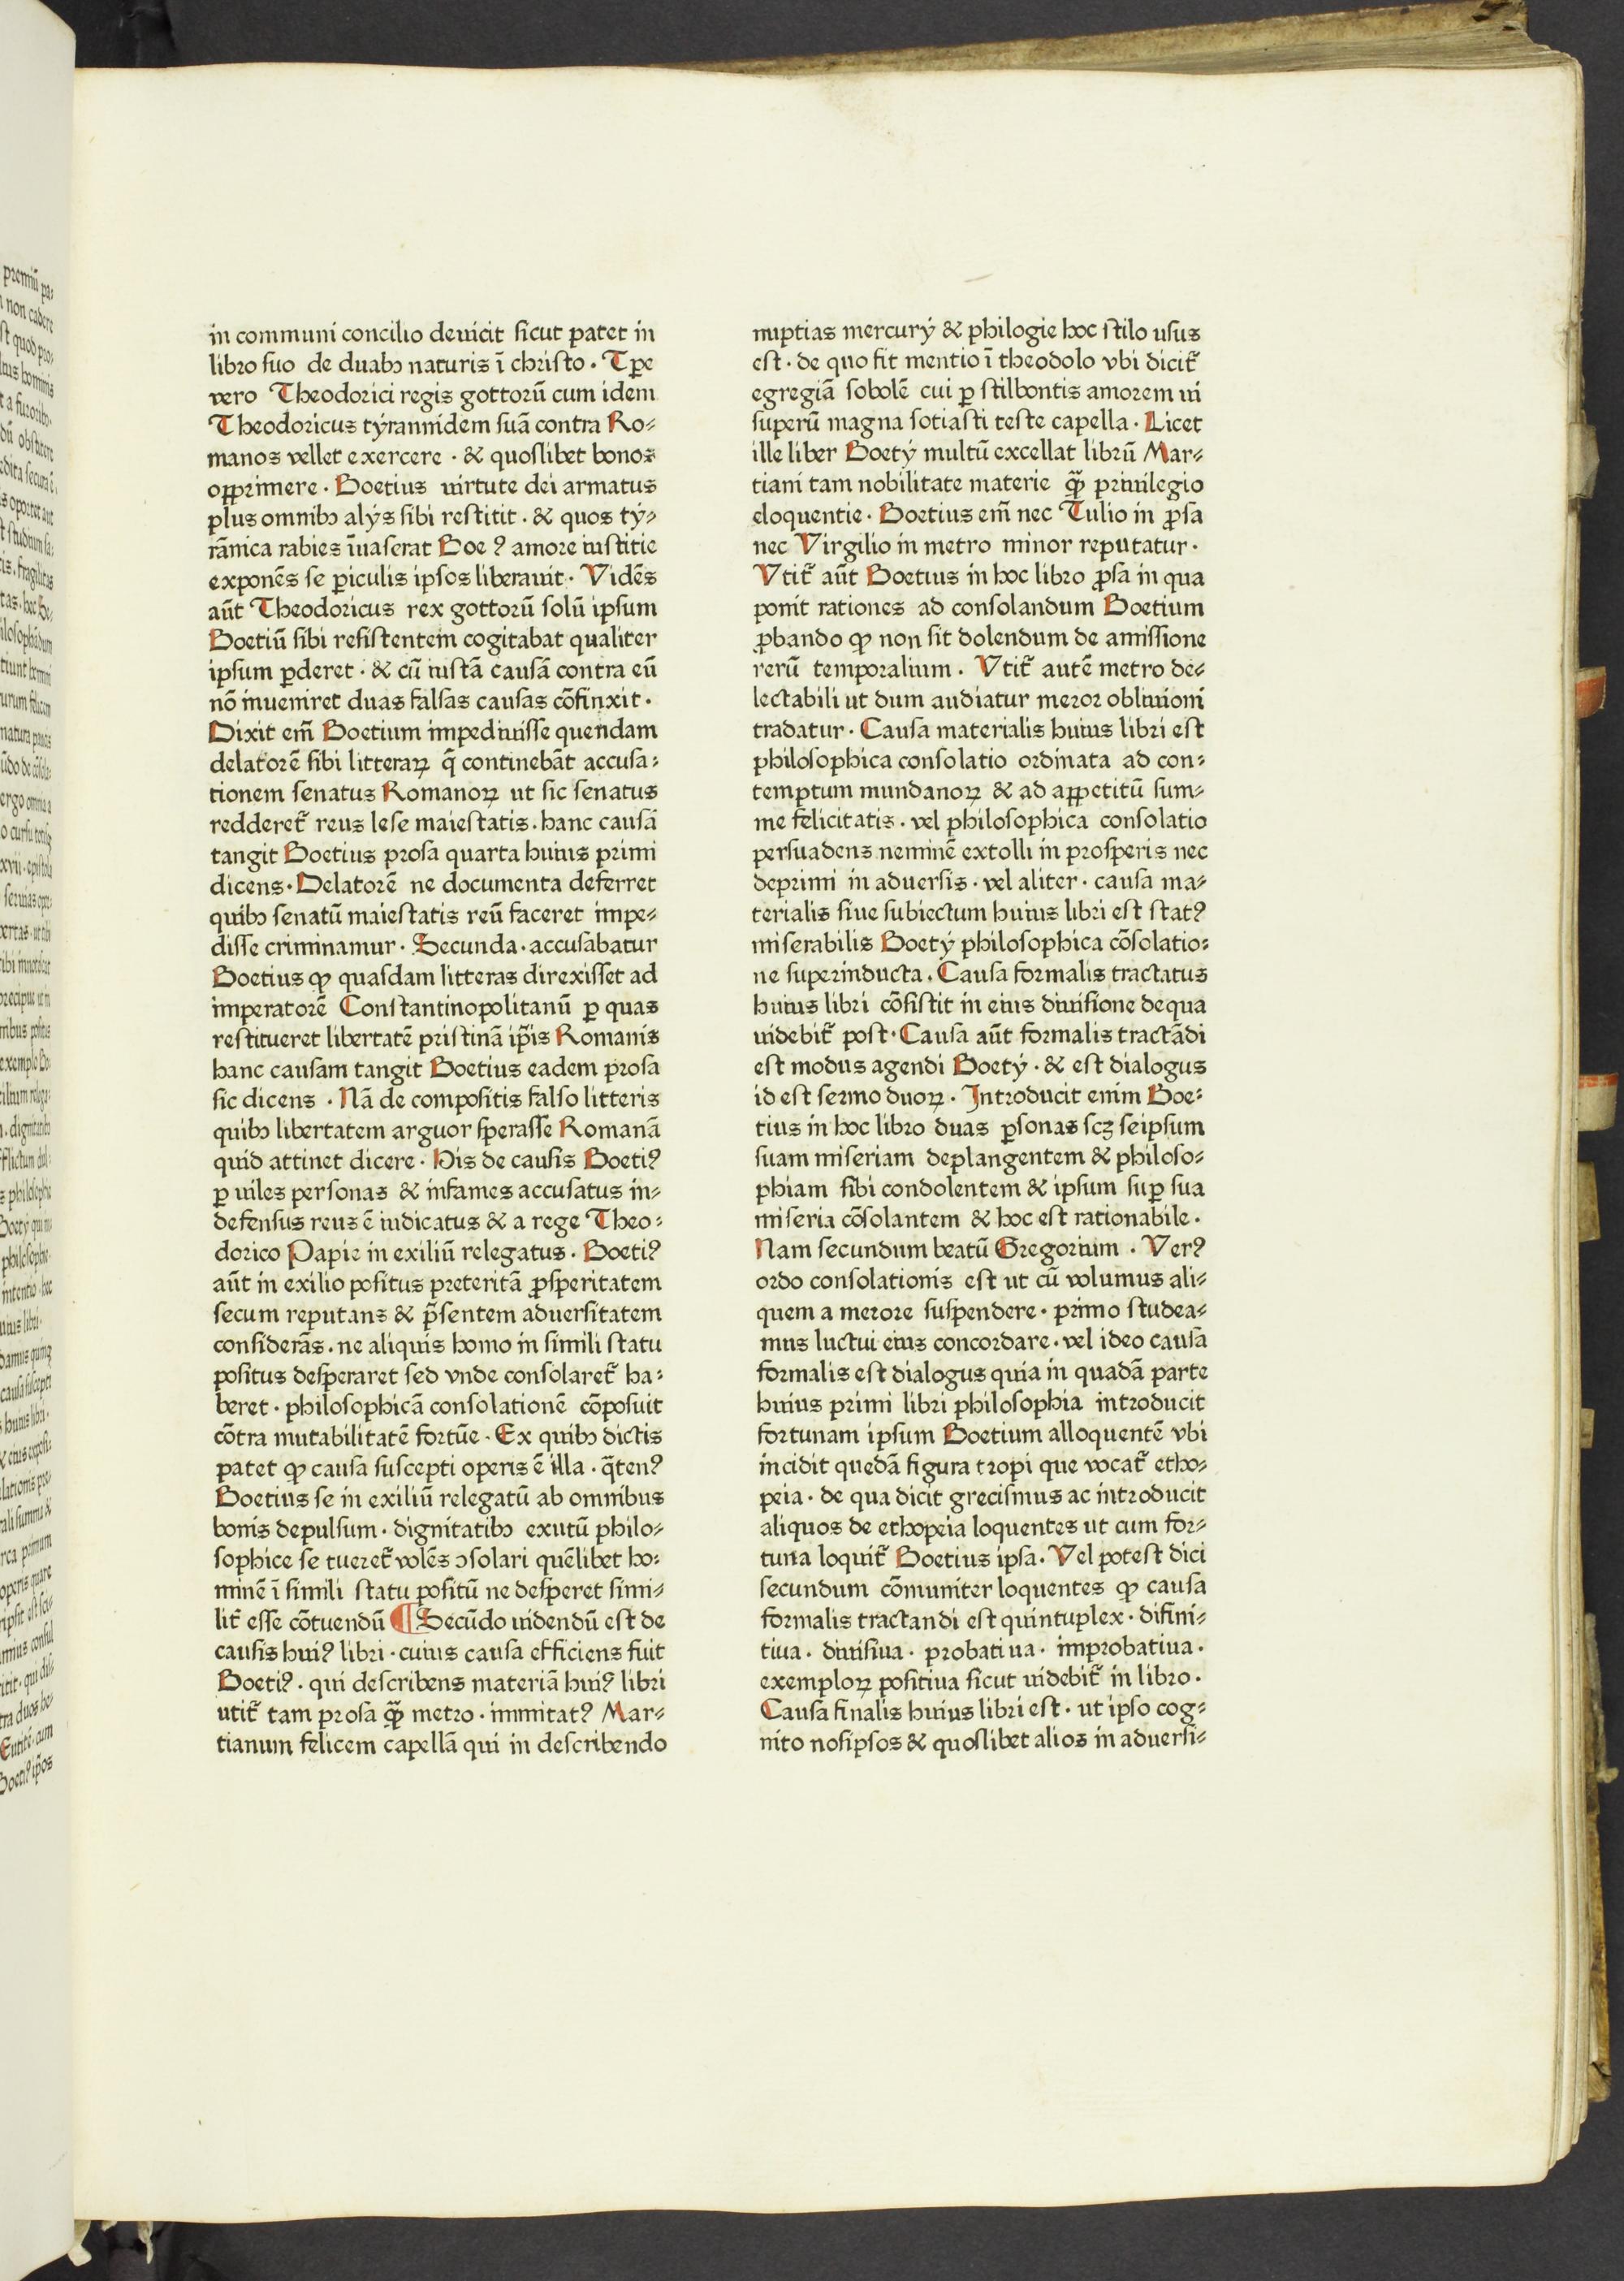 in communi concilio deuicit sicut patet in
libro suo de duabꝰ naturis ĩ christo · Tꝑe
vero Theodorici regis gottorũ cum idem
Theodoricus tyrannidem suã contra Ro-
manos vellet exercere · & quoslibet bonos
opprimere · Boetius uirtute dei armatus
plus omnibꝰ alijs sibi restitit · & quos ty-
rãnica rabies ĩuaserat Boe⁹ amore iustitie
exponẽs se ꝑiculis ipsos liberauit · Vidẽs
aũt Theodoricus rex gottorũ solũ ipsum
Boetiũ sibi resistentem cogitabat qualiter
ipsum ꝑderet · & cũ iustã causã contra eũ
nõ inueniret duas falsas causas cõfinxit ·
Dixit em̃ Boetium impediuisse quendam
delatorẽ sibi litteraꝝ q̃ continebãt accusa-
tionem senatus Romanoꝝ ut sic senatus
redderet᷒ reus lese maiestatis · hanc causã
tangit Boetius prosa quarta huius primi
dicens · Delatorẽ ne documenta deferret
quibꝰ senatũ maiestatis reũ faceret impe-
disse criminamur · Secunda · accusabatur
Boetius ꝙ quasdam litteras direxisset ad
imperatorẽ Constantinopolitanũ ꝑ quas
restitueret libertatẽ pristinã ip̃is Romanis
hanc causam tangit Boetius eadem prosa
sic dicens · Nã de compositis falso litteris
quibꝰ libertatem arguor sperasse Romanã
quid attinet dicere · His de causis Boeti⁹
ꝑ uiles personas & infames accusatus in-
defensus reus ẽ iudicatus & a rege Theo-
dorico Papie in exiliũ relegatus · Boeti⁹
aũt in exilio positus preteritã ꝓsperitatem
secum reputans & p̃sentem aduersitatem
considerãs · ne aliquis homo in simili statu
positus desperaret sed vnde consolaret᷒ ha-
beret · philosophicã consolationẽ cõposuit
cõtra mutabilitatẽ fortũe · Ex quibꝰ dictis
patet ꝙ causa suscepti operis ẽ illa · q̃ten⁹
Boetius se in exiliũ relegatũ ab omnibus
bonis depulsum · dignitatibꝰ exutũ philo-
sophice se tueret᷒ volẽs ꝯsolari quẽlibet ho-
minẽ ĩ simili statu positũ ne desperet simi-
lit᷒ esse cõtuendũ ¶ Secũdo uidendũ est de
causis hui⁹ libri · cuius causa efficiens fuit
Boeti⁹ · qui describens materiã hui⁹ libri
utit᷒ tam prosa q̃ꝫ metro · immitat⁹ Mar-
tianum felicem capellã qui in describendo
nuptias mercurij & philogie hoc stilo usus
est · de quo fit mentio ĩ theodolo vbi dicit᷒
egregiã sobolẽ cui ꝑ stilbontis amorem ni
superũ magna sotiasti teste capella · Licet
ille liber Boetij multũ excellat librũ Mar-
tiani tam nobilitate materie q̃ꝫ priuilegio
eloquentie · Boetius em̃ nec Tulio in ꝓsa
nec Virgilio in metro minor reputatur ·
Vtit᷒ aũt Boetius in hoc libro ꝓsa in qua
ponit rationes ad consolandum Boetium
ꝓbando ꝙ non sit dolendum de amissione
rerũ temporalium · Vtit᷒ autẽ metro de-
lectabili ut dum audiatur meror obliuioni
tradatur · Causa materialis huius libri est
philosophica consolatio ordinata ad con-
temptum mundanoꝝ & ad appetitũ sum-
me felicitatis · vel philosophica consolatio
persuadens neminẽ extolli in prosperis nec
deprimi in aduersis · vel aliter · causa ma-
terialis siue subiectum huius libri est stat⁹
miserabilis Boetij philosophica cõsolatio-
ne superinducta · Causa formalis tractatus
huius libri cõsistit in eius diuisione de qua
uidebit᷒ post · Causa aũt formalis tractãdi
est modus agendi Boetij · & est dialogus
id est sermo duoꝝ · Introducit enim Boe-
tius in hoc libro duas ꝑsonas scꝫ seipsum
suam miseriam deplangentem & philoso-
phiam sibi condolentem & ipsum suꝑ sua
miseria cõsolantem & hoc est rationabile ·
Nam secundum beatũ Gregorium · Ver⁹
ordo consolationis est ut cũ volumus ali-
quem a merore suspendere · primo studea-
mus luctui eius concordare · vel ideo causa
formalis est dialogus quia in quadã parte
huius primi libri philosophia introducit
fortunam ipsum Boetium alloquentẽ vbi
incidit quedã figura tropi que vocat᷒ etho-
peia · de qua dicit grecismus ac introducit
aliquos de ethopeia loquentes ut cum for-
tuna loquit᷒ Boetius ipsa · Vel potest dici
secundum cõmuniter loquentes ꝙ causa
formalis tractandi est quintuplex · difini-
tiua · diuisiua · probatiua · improbatiua ·
exemploꝝ positiua sicut uidebit᷒ in libro ·
Causa finalis huius libri est · ut ipso cog-
nito nosipsos & quoslibet alios in aduersi-